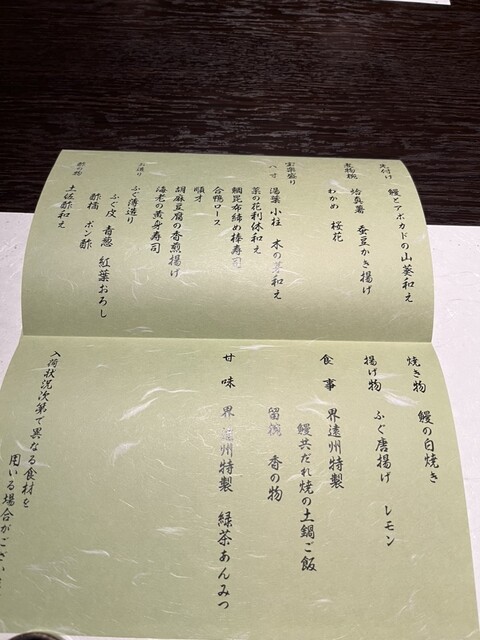 先付け 鰻とアボカドの山葵和え
煮物椀 蛤真薯 蚕豆かき揚げ
わかめ 桜花
宝楽盛り
八寸 湯葉 小柱 木の芽和え
菜の花利休和え
鯛昆布締め棒寿司
合鴨ロース
順才
胡麻豆腐の香煎揚げ
海老の黄身寿司
お造り ふぐ薄造り
ふぐ皮 青葱 紅葉おろし
酢橘 ポン酢
酢の物 土佐酢和え
焼き物 鰻の白焼き
揚げ物 ふぐ唐揚げ レモン
食事 界遠州特製
鰻共だれ焼の土鍋ご飯
留椀 香の物
甘味 界遠州特製 緑茶あんみつ
入荷状況次第で異なる食材を
用いる場合がござい